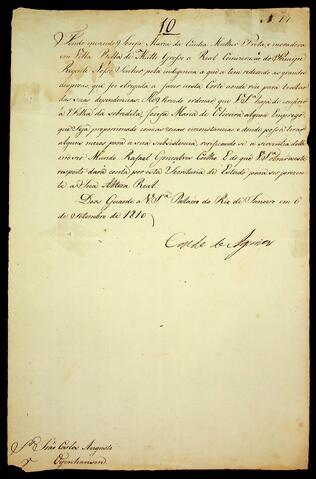 10
N 11
Tendo movido Jozefa Maria da Cunha Mulher Preta, e moradora
em Villa Bella de Matto Grosso a Real Comizeração do Principe
Regente Nosso Senhor, pela indigencia a que a tem reduzido as grandes
despezas, que foi obrigada a fazer nesta Corte aonde veio para tratar
das suas dependencias: He o servido ordenar que V.S.ª haja de conferir
á Filha da sobredita, Jozefa Maria de Oliveira algum Emprego,
que seja proporcionado com as suas circunstancias e donde possa tirar
alguns meios para a sua subsistencia,
Marido Rafael Gonçalves Coelho. E do que V.S.ª obrar a este
respeito dará conta por esta Secretaria de Estado para ser prezen-
te a Sua Alteza Real.
Deos Guarde a V.S.ª Palacio do Rio de Janeiro em 6
de Setembro de 1810
Conde de Aguiar
Sr. João Carlos Augusto
d' Oyenhausen